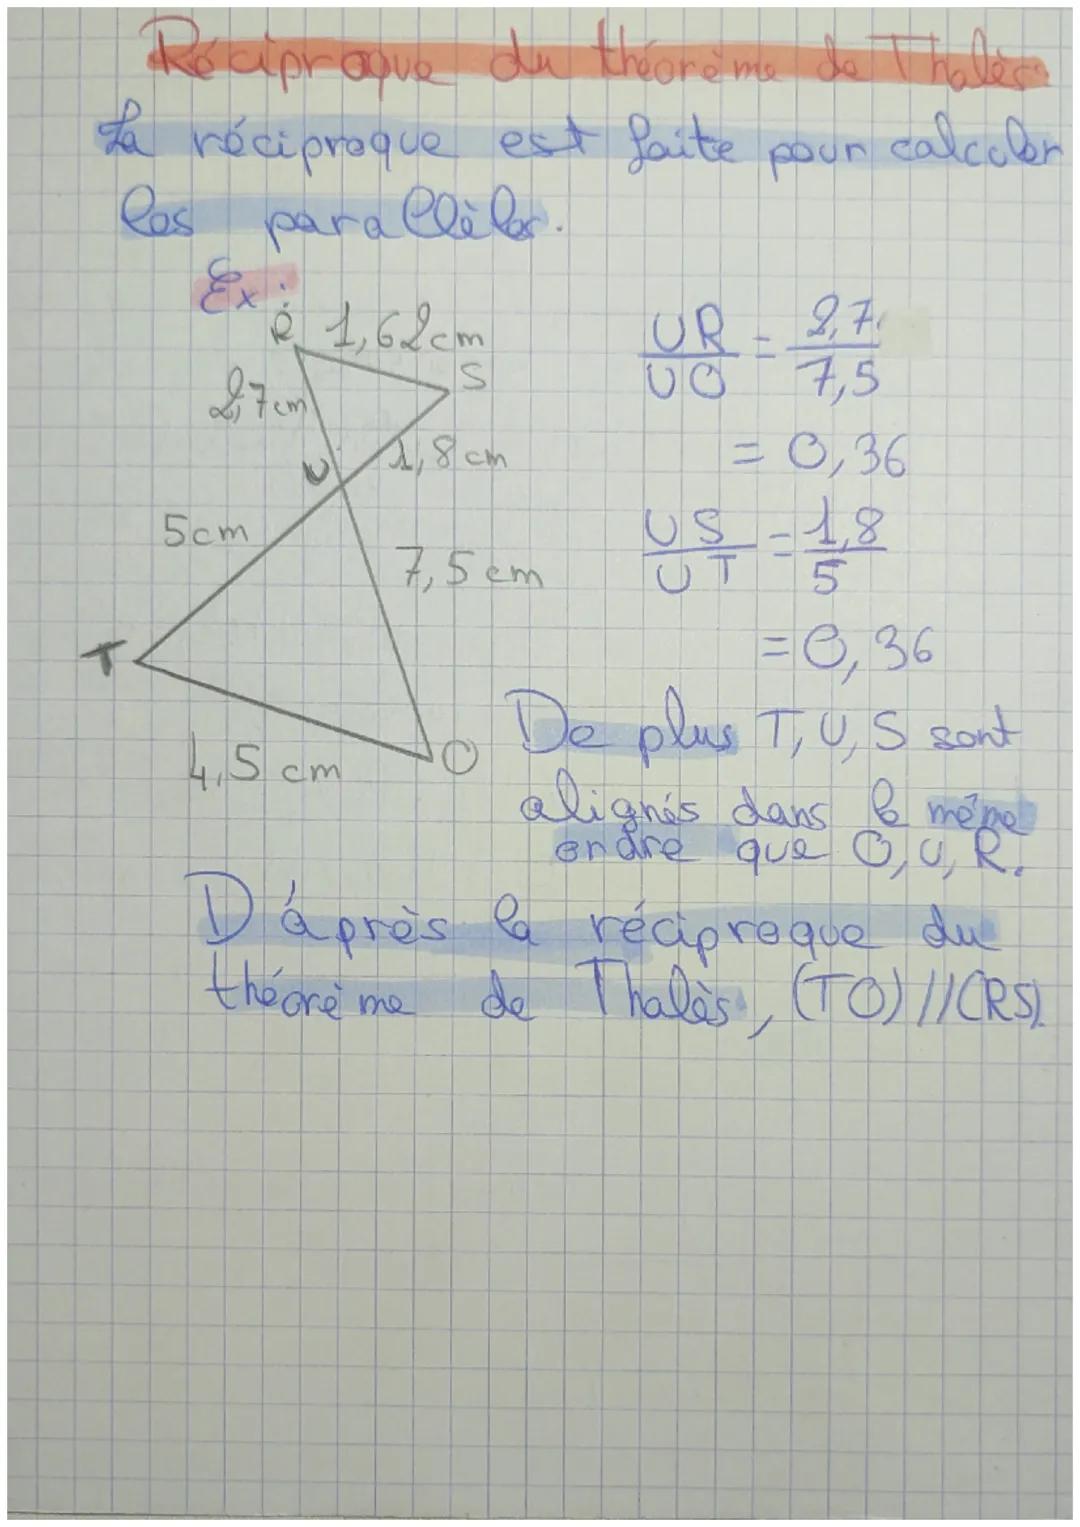 Réciproque du théorème de Thalès
La réciproque est faite pour calculer
les parallèles.
Ex:
R 1,62cm
S
2,7cm
U 1,8 cm
5cm
7,5 cm
T
4,5 cm
O
UR/UO = 2,7/7,5
= 0,36
US/UT = 1,8/5
= 0,36
De plus T, U, S sont
alignés dans le même
ordre que O, U, R.
D'après la réciproque du
théorème de Thalès, (TO)//(RS).